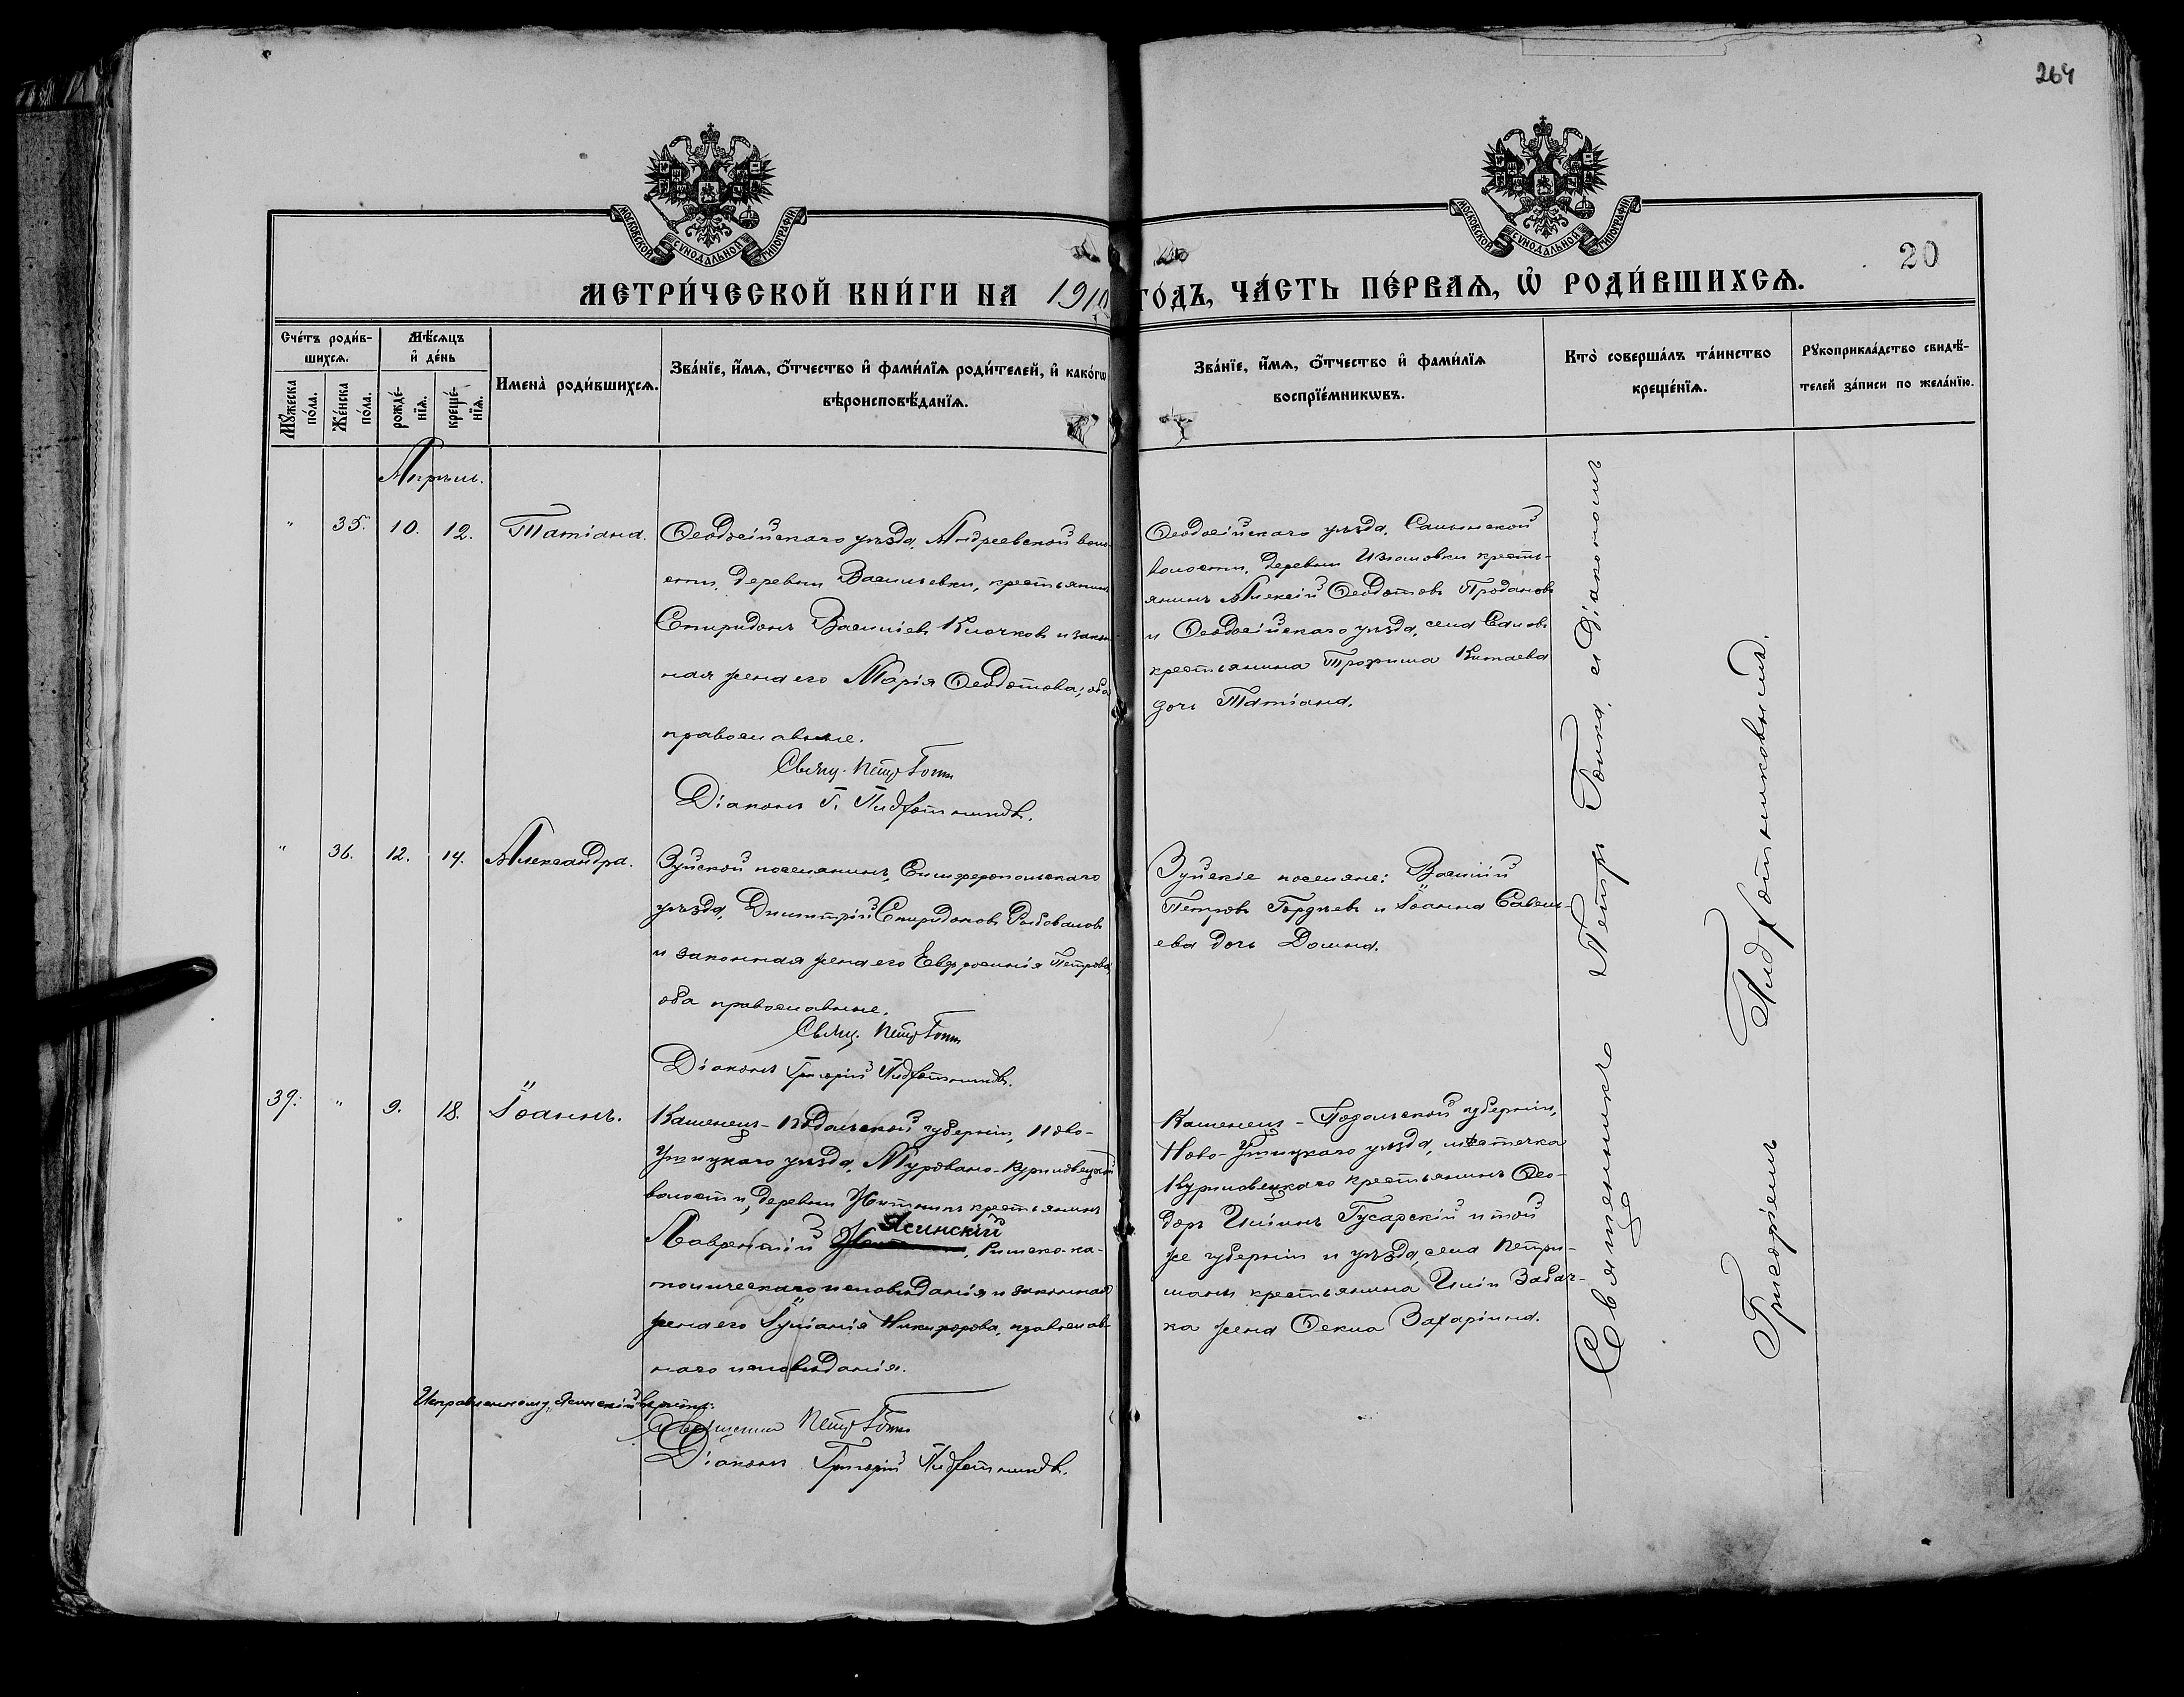 264
МОСКОВСКОЙ СѴНОДАЛЬНОЙ ТИПОГРАФІИ
МОСКОВСКОЙ СѴНОДАЛЬНОЙ ТИПОГРАФІИ
20
МЕТРИ́ЧЕСКОЙ КНИ́ГИ НА 191
ГО́ДЪ, ЧА́СТЬ ПЕ́РВАѦ, Ѡ҆ РОДИ́ВШИХСѦ.
Сче́тъ роди́в-
шихсѧ.
Мѣ́сѧцъ
и҆ де́нь
Мꙋ́жеска
по́ла.
Же́нска
по́ла.
рожде́-
нїѧ.
креще́-
нїѧ.
Имена̀ роди́вшихсѧ.
Зва́нїе, и҆́мѧ, ѻ҆́тчество и҆ фами́лїѧ роди́телей, и҆ како́гѡ
вѣроисповѣ́данїѧ.
Зва́нїе, и҆́мѧ, ѻ҆́тчество и҆ фами́лїѧ
воспрїе́мникѡвъ.
Кто̀ соверша́лъ та́инство
креще́нїѧ.
Рꙋкоприкла́дство свидѣ́-
телей за́писи по жела́нїю.
Апрѣль.
" 35. 10. 12. Татіана.
Ѳеодосійскаго уѣзда, Андреевской воло-
сти, деревни Васильевки, крестьянинъ
Спиридонъ Васильевъ Клочковъ и закон-
ная жена его Марія Ѳеодотова; оба
православные.
Свящ. Петръ
Діаконъ Г.
Ѳеодосійскаго уѣзда,
волости, деревни Изюмовки кресть-
янинъ Алексій Ѳеодотовъ Продановъ
и Ѳеодосійскаго уѣзда, села
крестьянина Трофима Китаева
дочь Татіана.
" 36. 12. 14. Александра.
Зуйской поселянинъ, Симферопольскаго
уѣзда, Димитрій Спиридоновъ
и законная жена его Евфросинія Петрова,
оба православные.
Свящ. Петръ
Діаконъ Григорій
Зуйскіе поселяне: Василій
Петровъ Гордѣевъ и Іоанна Савель-
ева дочь Домна.
39. " 9. 18. Іоаннъ.
Каменец-Подольской губерніи, Ново-
Ушицкаго уѣзда, Муровано-Куриловецкой
волости, деревни Житникъ крестьянинъ
Ясинскій
Лаврентій , Римско-ка-
толическаго исповѣданія и законная
жена его Іуліанія Никифорова, православ-
наго исповѣданія.
Исправленному: Ясинскій вѣрить:
Священникъ Петръ
Діаконъ Григорій
Каменец-Подольской губерніи,
Ново-Ушицкаго уѣзда, мѣстечка
Куриловецкаго крестьянинъ Ѳео-
доръ Гусарскій и той
же губерніи и уѣзда, села Петри-
мани крестьянина Иліи Забач-
ка жена Ѳекла Захаріина.
Священникъ Петръ съ Діакономъ
Григоріемъ